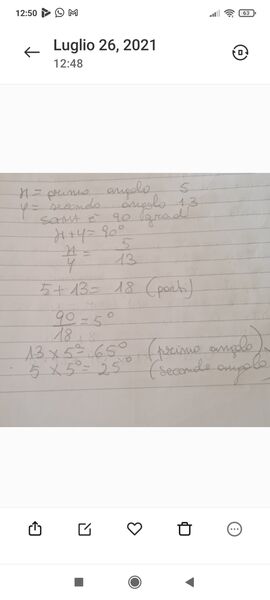 12:50
63
Luglio 26, 2021
12:48
x = primo angolo 5
y = secondo angolo 13
è 90 gradi
x+y=90°
x/y = 5/13
5+13= 18 (parti)
90/18=5°
13×5°= 65° (primo angolo)
5×5°= 25° (secondo angolo